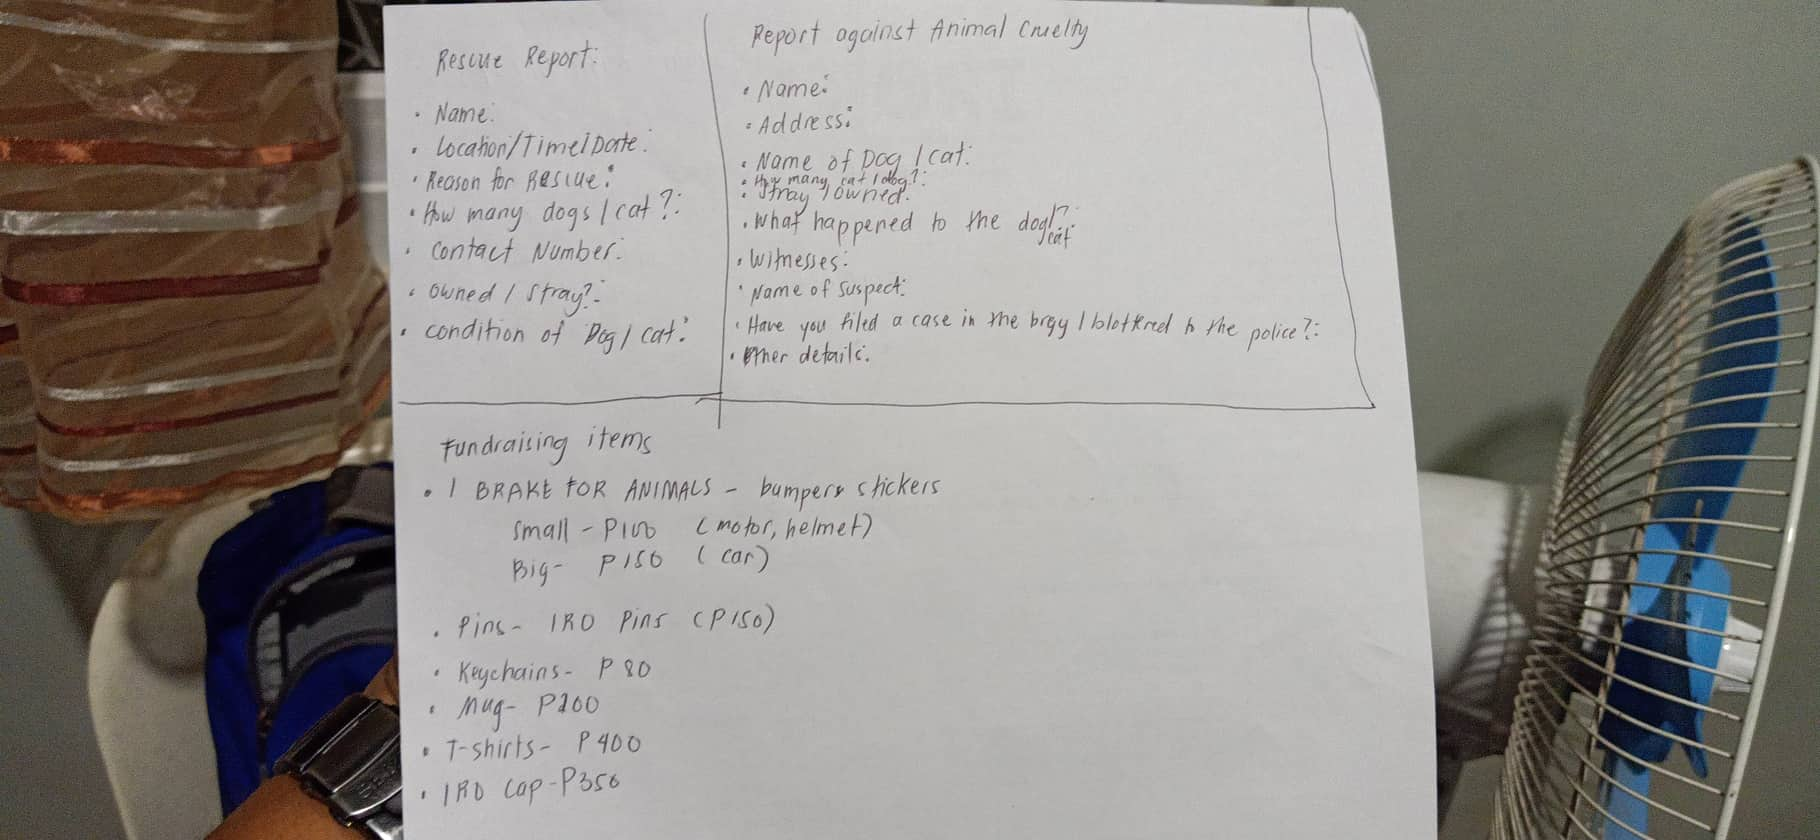 Rescue Report:
• Name:
• Location/Time/Date:
• Reason for Rescue:
• How many dogs / cat ?:
• Contact Number:
• Owned / Stray?:
• condition of Dog / cat:
Report against Animal Cruelty
• Name:
• Address:
• Name of Dog / cat:
• How many cat / dog?:
• Stray / owned:
• What happened to the dog/cat?:
• Witnesses:
• Name of Suspect:
• Have you filed a case in the brgy / blottered to the police?:
• Other details:
Fundraising items
• I BRAKE FOR ANIMALS - bumpers stickers
Small - P100 (motor, helmet)
Big- P150 (car)
• Pins- IRO Pins (P150)
• Keychains- P 80
• Mug- P200
• T-shirts- P400
• IRO Cap-P350